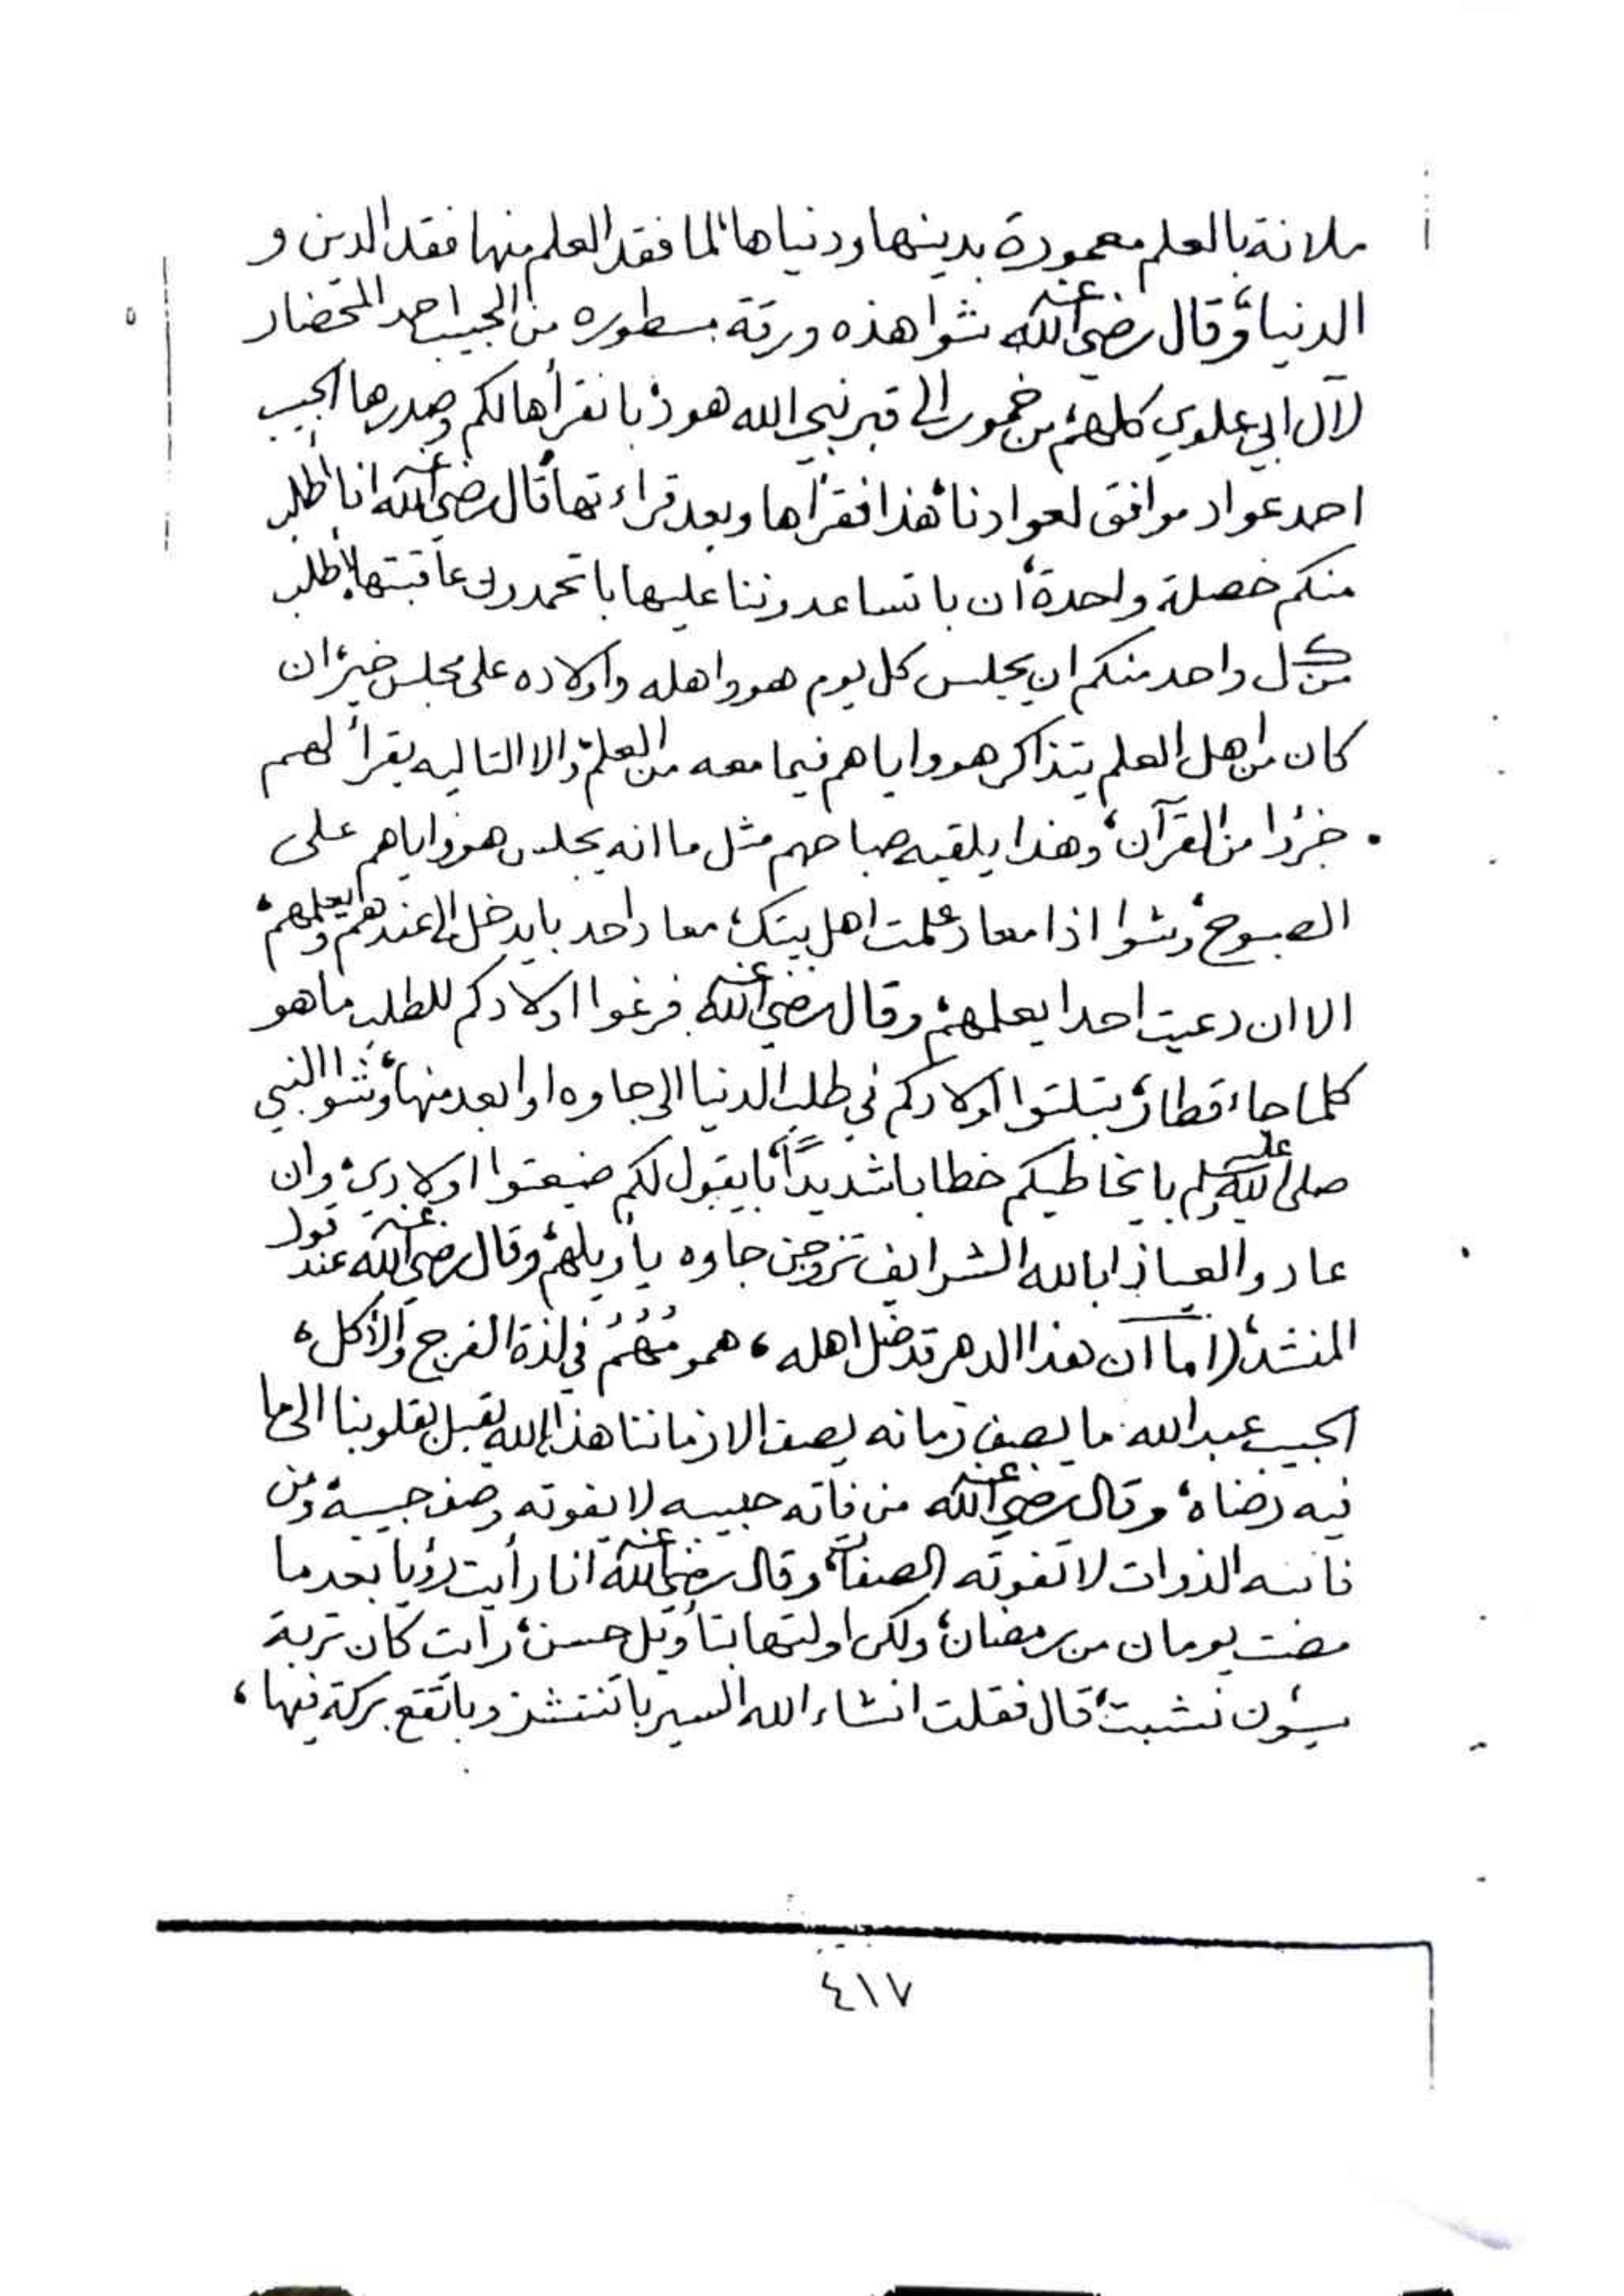 ملانة بالعلم معمورة بدينها ودنياها، لما فقد العلم منها فقد الدين و
الدنيا، وقال رضي الله عنه شوا هذه ورقة مسطوره من الحبيب احمد المحضار
لآل ابي علوي كلهم، من خمور الى قبر نبي الله هود، با نقرأها لكم وصدرها الحبيب
احمد عواد موافق لعوادنا، هذا فقرأها وبعد قراءتها قال رضي الله عنه انا أطلب
منكم خصلة واحدة، ان با تساعدوننا عليها با تحمدون عاقبتها، أطلب
من كل واحد منكم ان يجلس كل يوم هو واهله وأولاده على مجلس خير، ان
كان من اهل العلم يتذاكر هو واياهم فيما معه من العلم، والا التاليه يقرأ لهم
جزءا من القرآن، وهذا يلقيه صباحهم مثل ما انه يجلس هو واياهم على
الصبوح، وشوا اذا معاد علمت اهل بيتك، معاد احد بايدخل الى عندهم ويعلمهم،
الا ان دعيت احدا يعلمهم، وقال رضي الله عنه فرغوا اولادكم للطلب، ما هو
كلما جاء قطار، بتلتوا أولادكم في طلب الدنيا الى جاوه او ابعد منها، وشوا النبي
صلى الله عليه وسلم با يخاطبكم خطابا شديدًا، با يقول لكم ضيعتوا اولادي، وان
عاد والعياذ بالله الشرايف تزوجن جاوه يا ويلهم، وقال رضي الله عنه عند قول
المنشد، (اما آن هذا الدهر قد ضل اهله، همومُهُمُ في لذة الفرج والأكل،
الحبيب عبد الله ما يصف زمانه يصف الا زماننا هذا، الله يقبل بقلوبنا الى ما
فيه رضاه، وقال رضي الله عنه من فاته حبيبه لا يفوته وصف حبيبه، ومن
فاتته الذوات لا تفوته الصفات، وقال رضي الله عنه انا رأيت رؤيا بعد ما
مضت يومان من رمضان، ولكن اولتها بتأويل حسن، رأيت كان تربة
سيئون نشبت، قال فقلت انشاء الله السير با تنتشر وبا تقع بركة فيها،
٤١٧